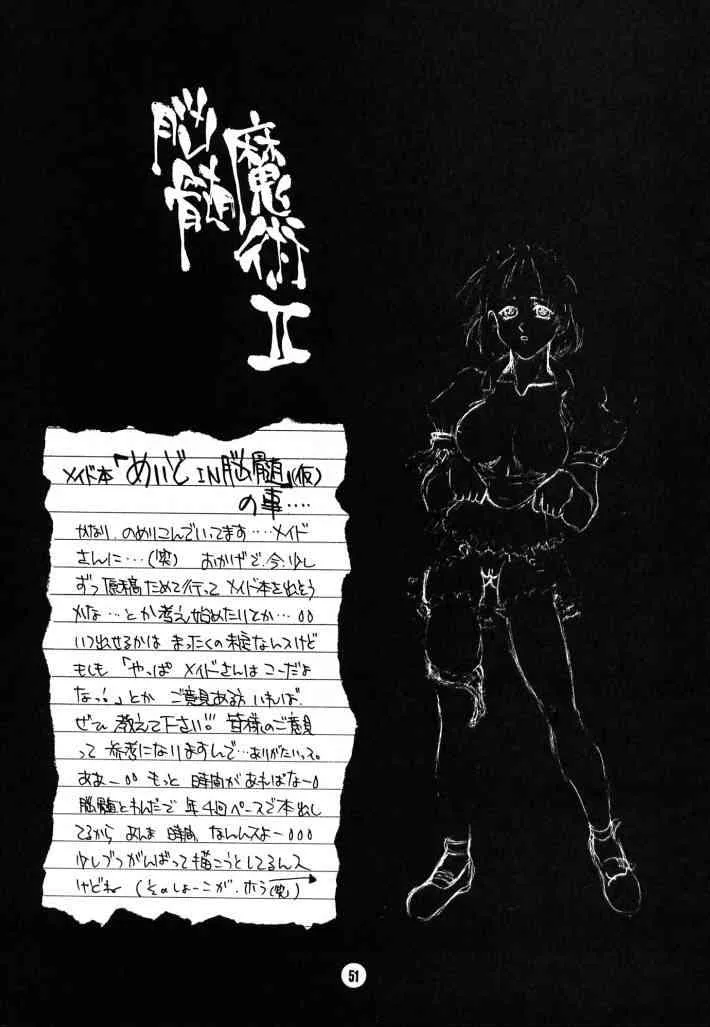 魔術II
脳髄
メイド本「めいどIN脳髄」(仮)
の事‥‥
かなり、のめりこんでいってます‥‥メイド
さんに‥‥(笑) おかげで、今、少し
ずつ原稿ためて行って メイド本を出そう
かな‥‥とか考え始めたりとか‥‥。。
いつ出せるかは まったくの未定なんスけど
もしも 「やっぱ メイドさんは こーだよ
なっ!」とか ご意見ある方 いれば、
ぜひ 教えて下さい!! 皆様のご意見
って 参考になりますんで‥‥ありがたいっス。
ああー。。 もっと 時間があればなー。
脳髄と れんだで 年4回ペースで本出し
てるから あんま 時間 ないんスよー。。。
少しづつがんばって描こうとしてるんス
けどね (そのしょーこが、ホラ(笑))
51